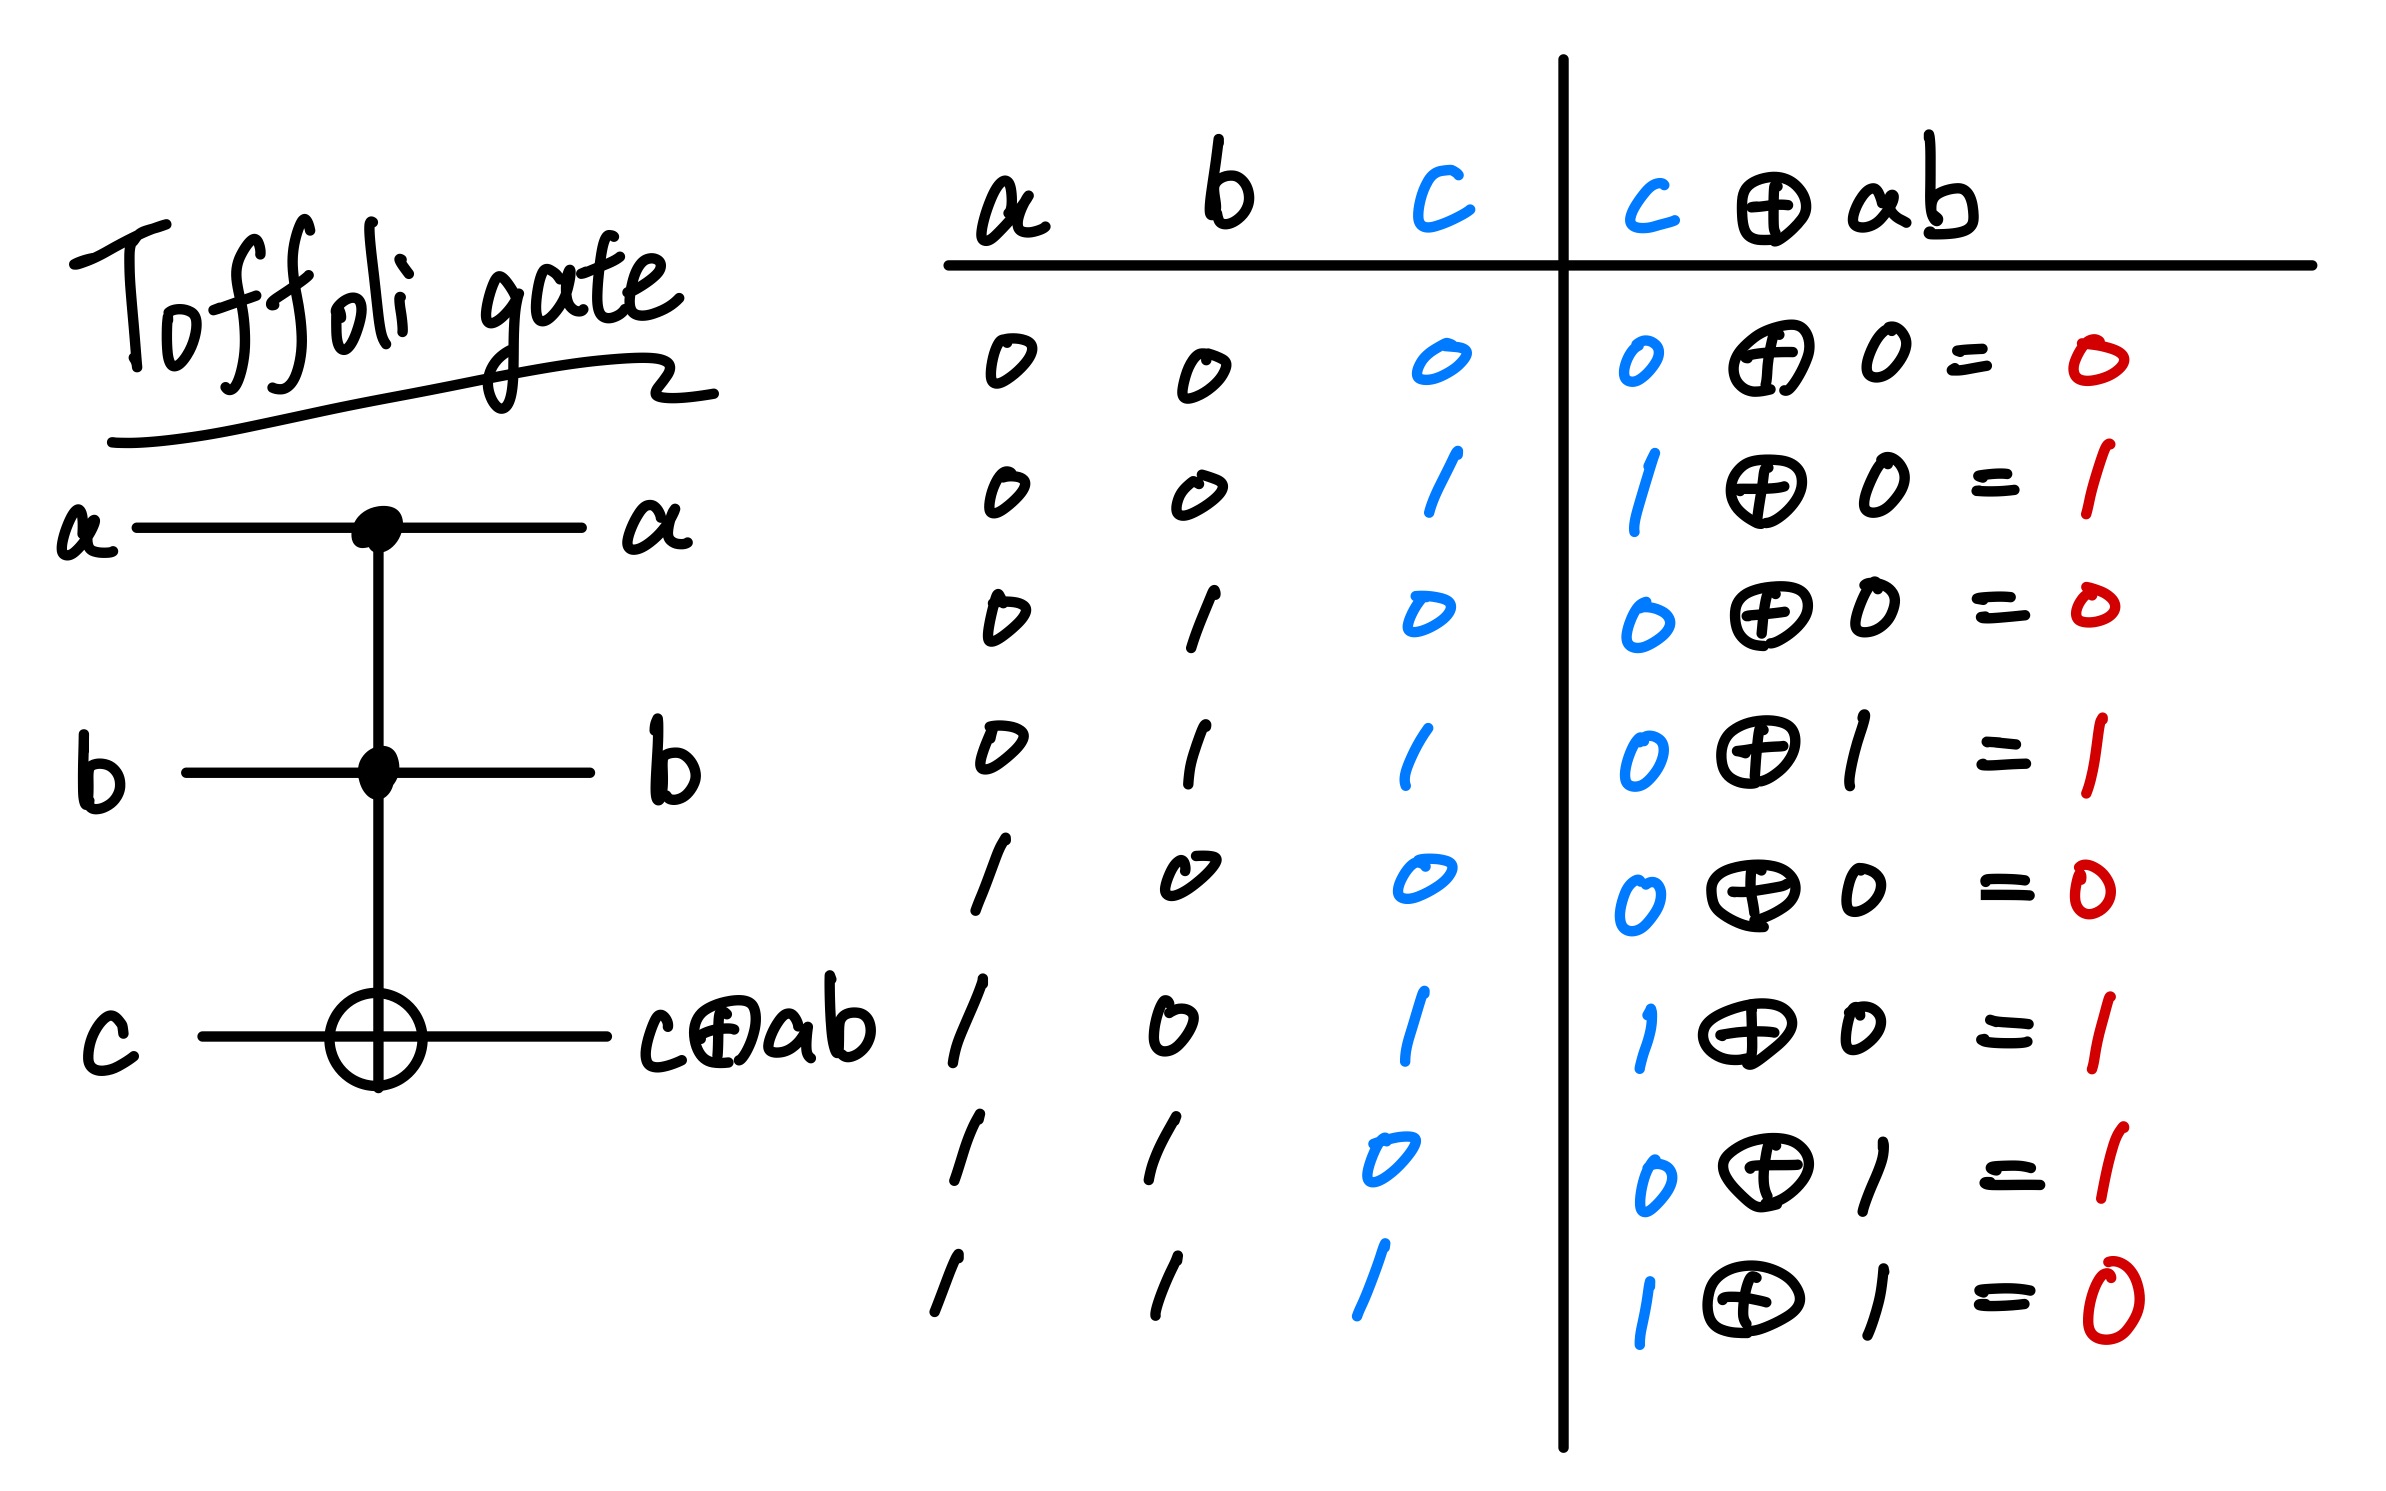 Toffoli gate
a a
b b
c c⊕ab
a b c c ⊕ ab
0 0 0 0 ⊕ 0 = 0
0 0 1 1 ⊕ 0 = 1
0 1 0 0 ⊕ 0 = 0
0 1 1 0 ⊕ 1 = 1
1 0 0 0 ⊕ 0 = 0
1 0 1 1 ⊕ 0 = 1
1 1 0 0 ⊕ 1 = 1
1 1 1 1 ⊕ 1 = 0